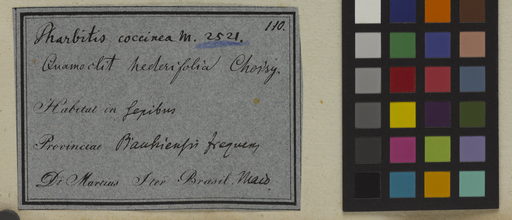 110.
Pharbitis coccinea m. 2521.
Quamoclit hederifolia Choisy.
Habitat in sepibus
Provinciae Bauhiensis frequens
Di Martius Iter Brasil. Maio.